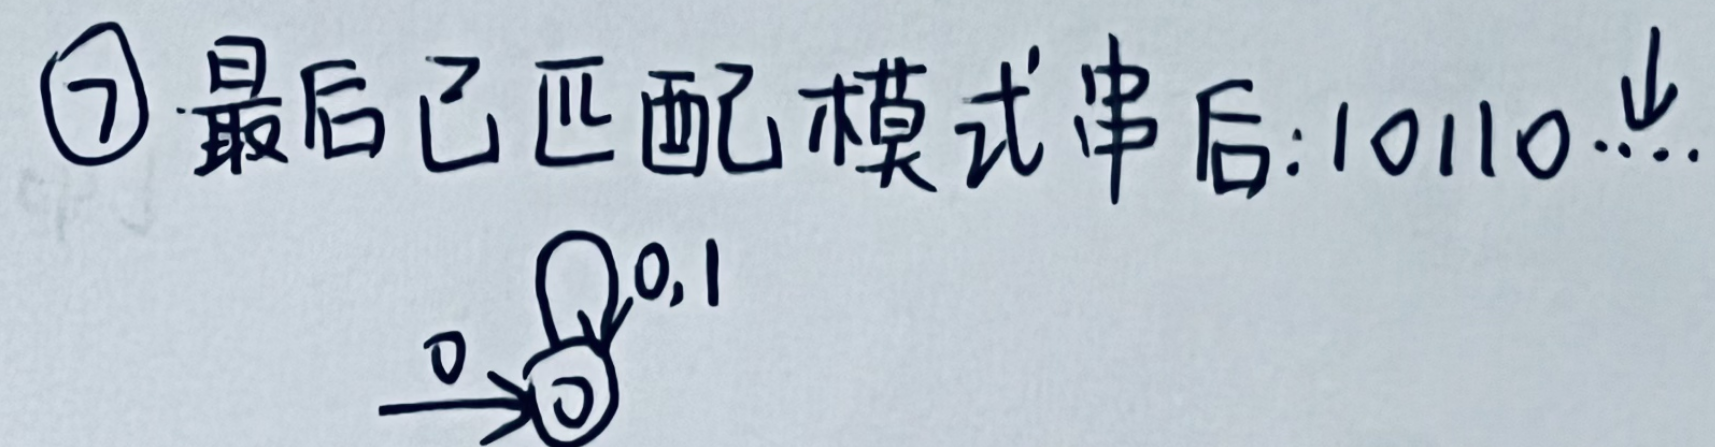 ⑦最后已匹配模式串后:10110.....
0,1
0